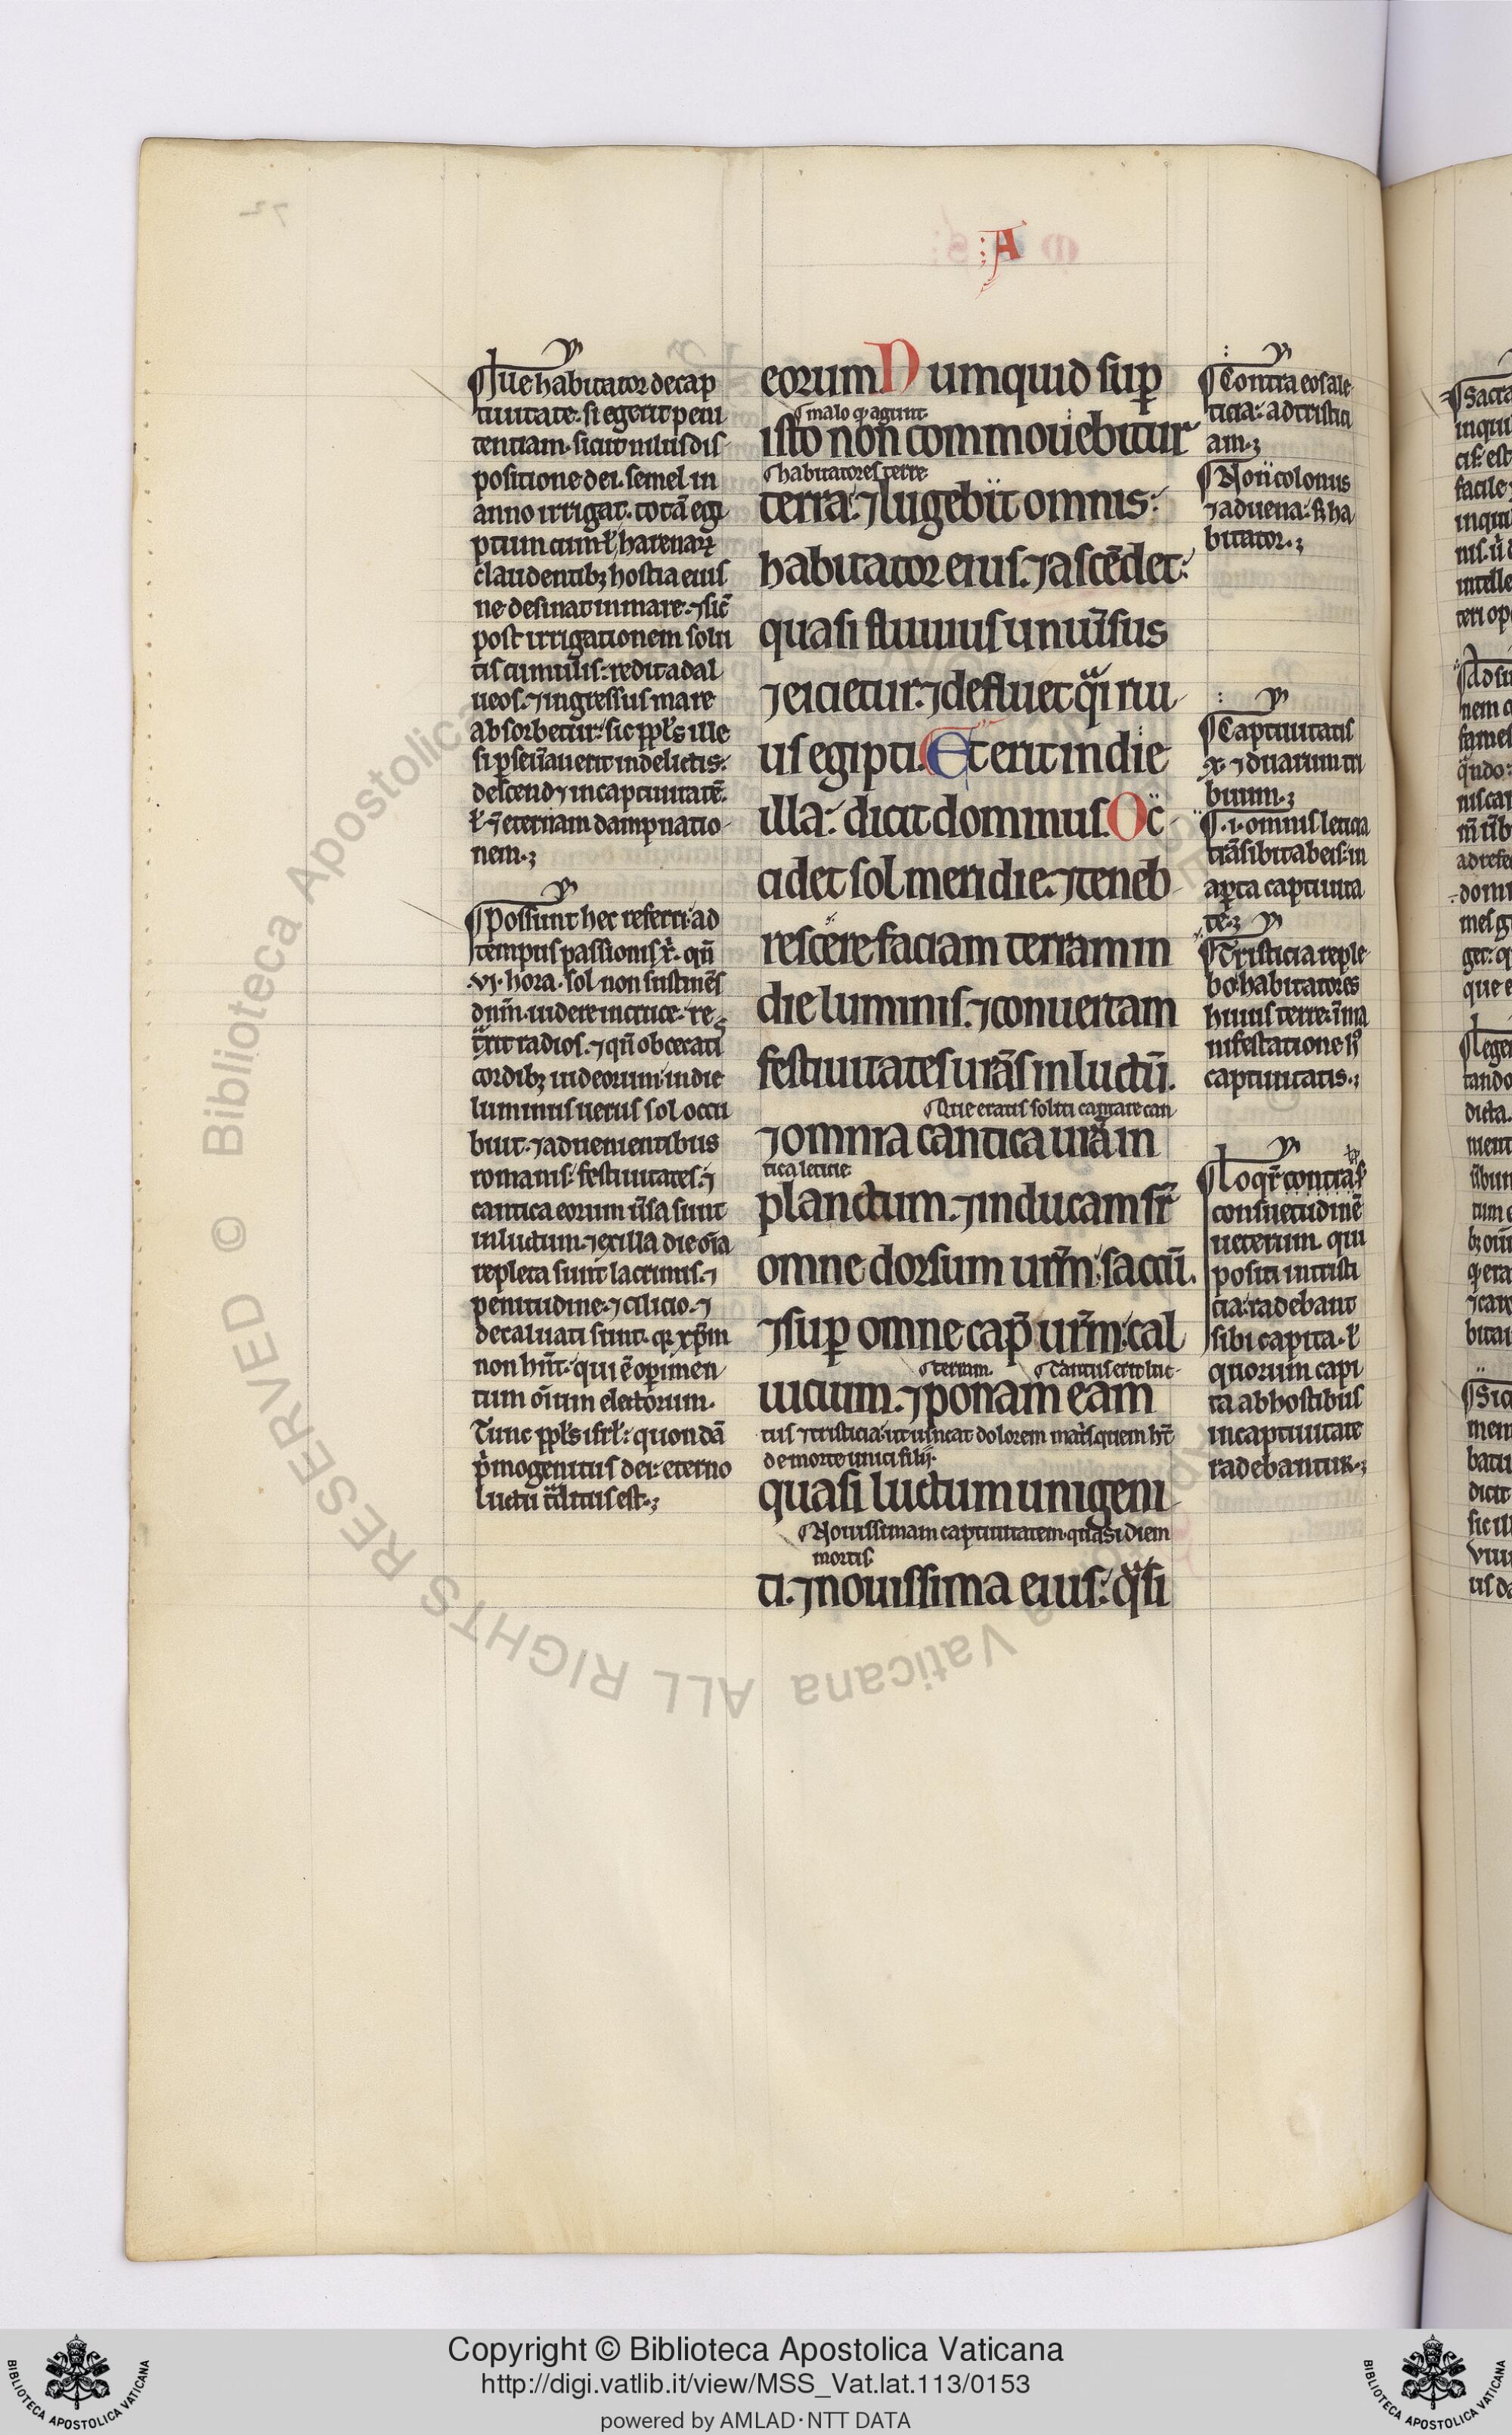 :A
ẏ
¶ Iue habitator de cap
tiuitate. si egerit peni
tentiam. sicut nilus dis
positione dei. semel in
anno irrigat. totā egi
ptum cum ł harenarꝝ
claudentibꝫ hostia eius
ne desinat in mare. ⁊ sic̄
post irrigationem solu
tis cumulis: redit ad al
ueos. ⁊ ingressus mare
absorbetur: sic ppłs ille
si pseu̅auerit in delictis:
descend⁊ in captiuitatē.
ł ī eternam dampnatio
nem.;
ẏ
¶ Possunt hec referri ad
tempus passionis xp̄i. qn̄
.vj. hora. sol non sustinēs
dn̄m uidere in cruce. re
trͣxit radios. ⁊ qn̄ obcecatis
cordibꝫ iudeorum in die
luminis uerus sol occu
buit. ⁊ aduenientibus
romanis: festiuitates. ⁊
cantica eorum ūsa sunt
in luctum. ⁊ ex illa die oīa
repleta sunt lacrimis. ⁊
penitudine. ⁊ cilicio. ⁊
decaluati sunt. qꝛ xp̄m
non hn̄t. qui ē opimen
tum oīum electorum.
Tunc ppłs isrł: quondā
pͥmogenitus dei: eterno
luctu trͣditus est.;
eorum Numquid suꝑ
¶ malo qͩ agunt.
isto non commouebitur
¶ habitatores terre
terra: ⁊ lugebit omnis:
habitator eius. ⁊ ascēdet:
quasi fluuius uniūsus
⁊ eicietur. ⁊ defluet qͣi riu
us egipti. Et erit in die
illa: dicit dominus. Oc
cidet sol meridie: ⁊ teneb
rescere faciam terram in
die luminis. ⁊ conuertam
festiuitates urās in luctū.
¶ Que eratis soliti cantare can
⁊ omnia cantica urā in
tica leticie
planctum. ⁊ inducam sr̄
omne dorsum urm̄: saccū.
⁊ suꝑ omne cap̄ urm̄: cal
¶ terram. ¶ Tantus erit luc
uicium. ⁊ ponam eam
tus ⁊ tristicia: ut uincat dolorem matͥs quem ht̄
de morte unici filij.
quasi luctum unigeni
¶ Nouissimam captiuitatem. quasi diem
mortis
ti. ⁊ nouissima eius: qͣsi
ẏ
¶ Contra eos a le
ticia: ad tristici
am.;
¶ Non colonus
⁊ aduena: s; ha
bitator.;
ẏ
¶ Captiuitatis
.x. ⁊ duarum tri
buum.;
¶ .i. omnis leticia
trāsibit ab eis: in
aꝑta captiuita
te.; ẏ
¶ Tristicia reple
bo habitatores
huius terre: ī ma
nifestatione hꝰ
captiuitatis.;
ẏ
¶ Loqͥr̄ contra
consuetudinē
ueterum. qui
positi in tristi
cia: radebant
sibi capita. ł
quorum capi
ta ab hostibus
in captiuitate
radebantur.;
Copyright © Biblioteca Apostolica Vaticana
http://digi.vatlib.it/view/MSS_Vat.lat.113/0153
powered by AMLAD·NTT DATA
BIBLIOTECA APOSTOLICA VATICANA
BIBLIOTECA APOSTOLICA VATICANA
© Biblioteca Apostolica Vaticana ALL RIGHTS RESERVED